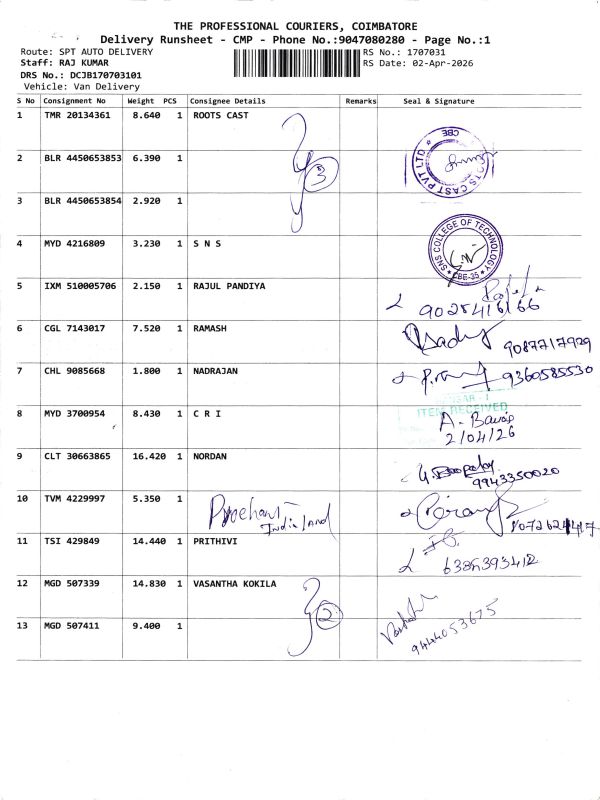 THE PROFESSIONAL COURIERS, COIMBATORE
Delivery Runsheet - CMP - Phone No.:9047080280 - Page No.:1
Route: SPT AUTO DELIVERY RS No.: 1707031
Staff: RAJ KUMAR RS Date: 02-Apr-2026
DRS No.: DCJB170703101
Vehicle: Van Delivery
S No Consignment No Weight PCS Consignee Details Remarks Seal & Signature
1 TMR 20134361 8.640 1 ROOTS CAST
CBE
ROOTS CAST PVT LTD
2 BLR 4450653853 6.390 1
3
3 BLR 4450653854 2.920 1
4 MYD 4216809 3.230 1 S N S
SNS COLLEGE OF TECHNOLOGY
CBE-35
5 IXM 510005706 2.150 1 RAJUL PANDIYA
9025416166
6 CGL 7143017 7.520 1 RAMASH
9087717929
7 CHL 9085668 1.800 1 NADRAJAN
9360585530
8 MYD 3700954 8.430 1 C R I
ITEM RECEIVED
2/04/26
9 CLT 30663865 16.420 1 NORDAN
9943350020
10 TVM 4229997 5.350 1
India land
11 TSI 429849 14.440 1 PRITHIVI
6385393412
12 MGD 507339 14.830 1 VASANTHA KOKILA
2
13 MGD 507411 9.400 1
9444053675